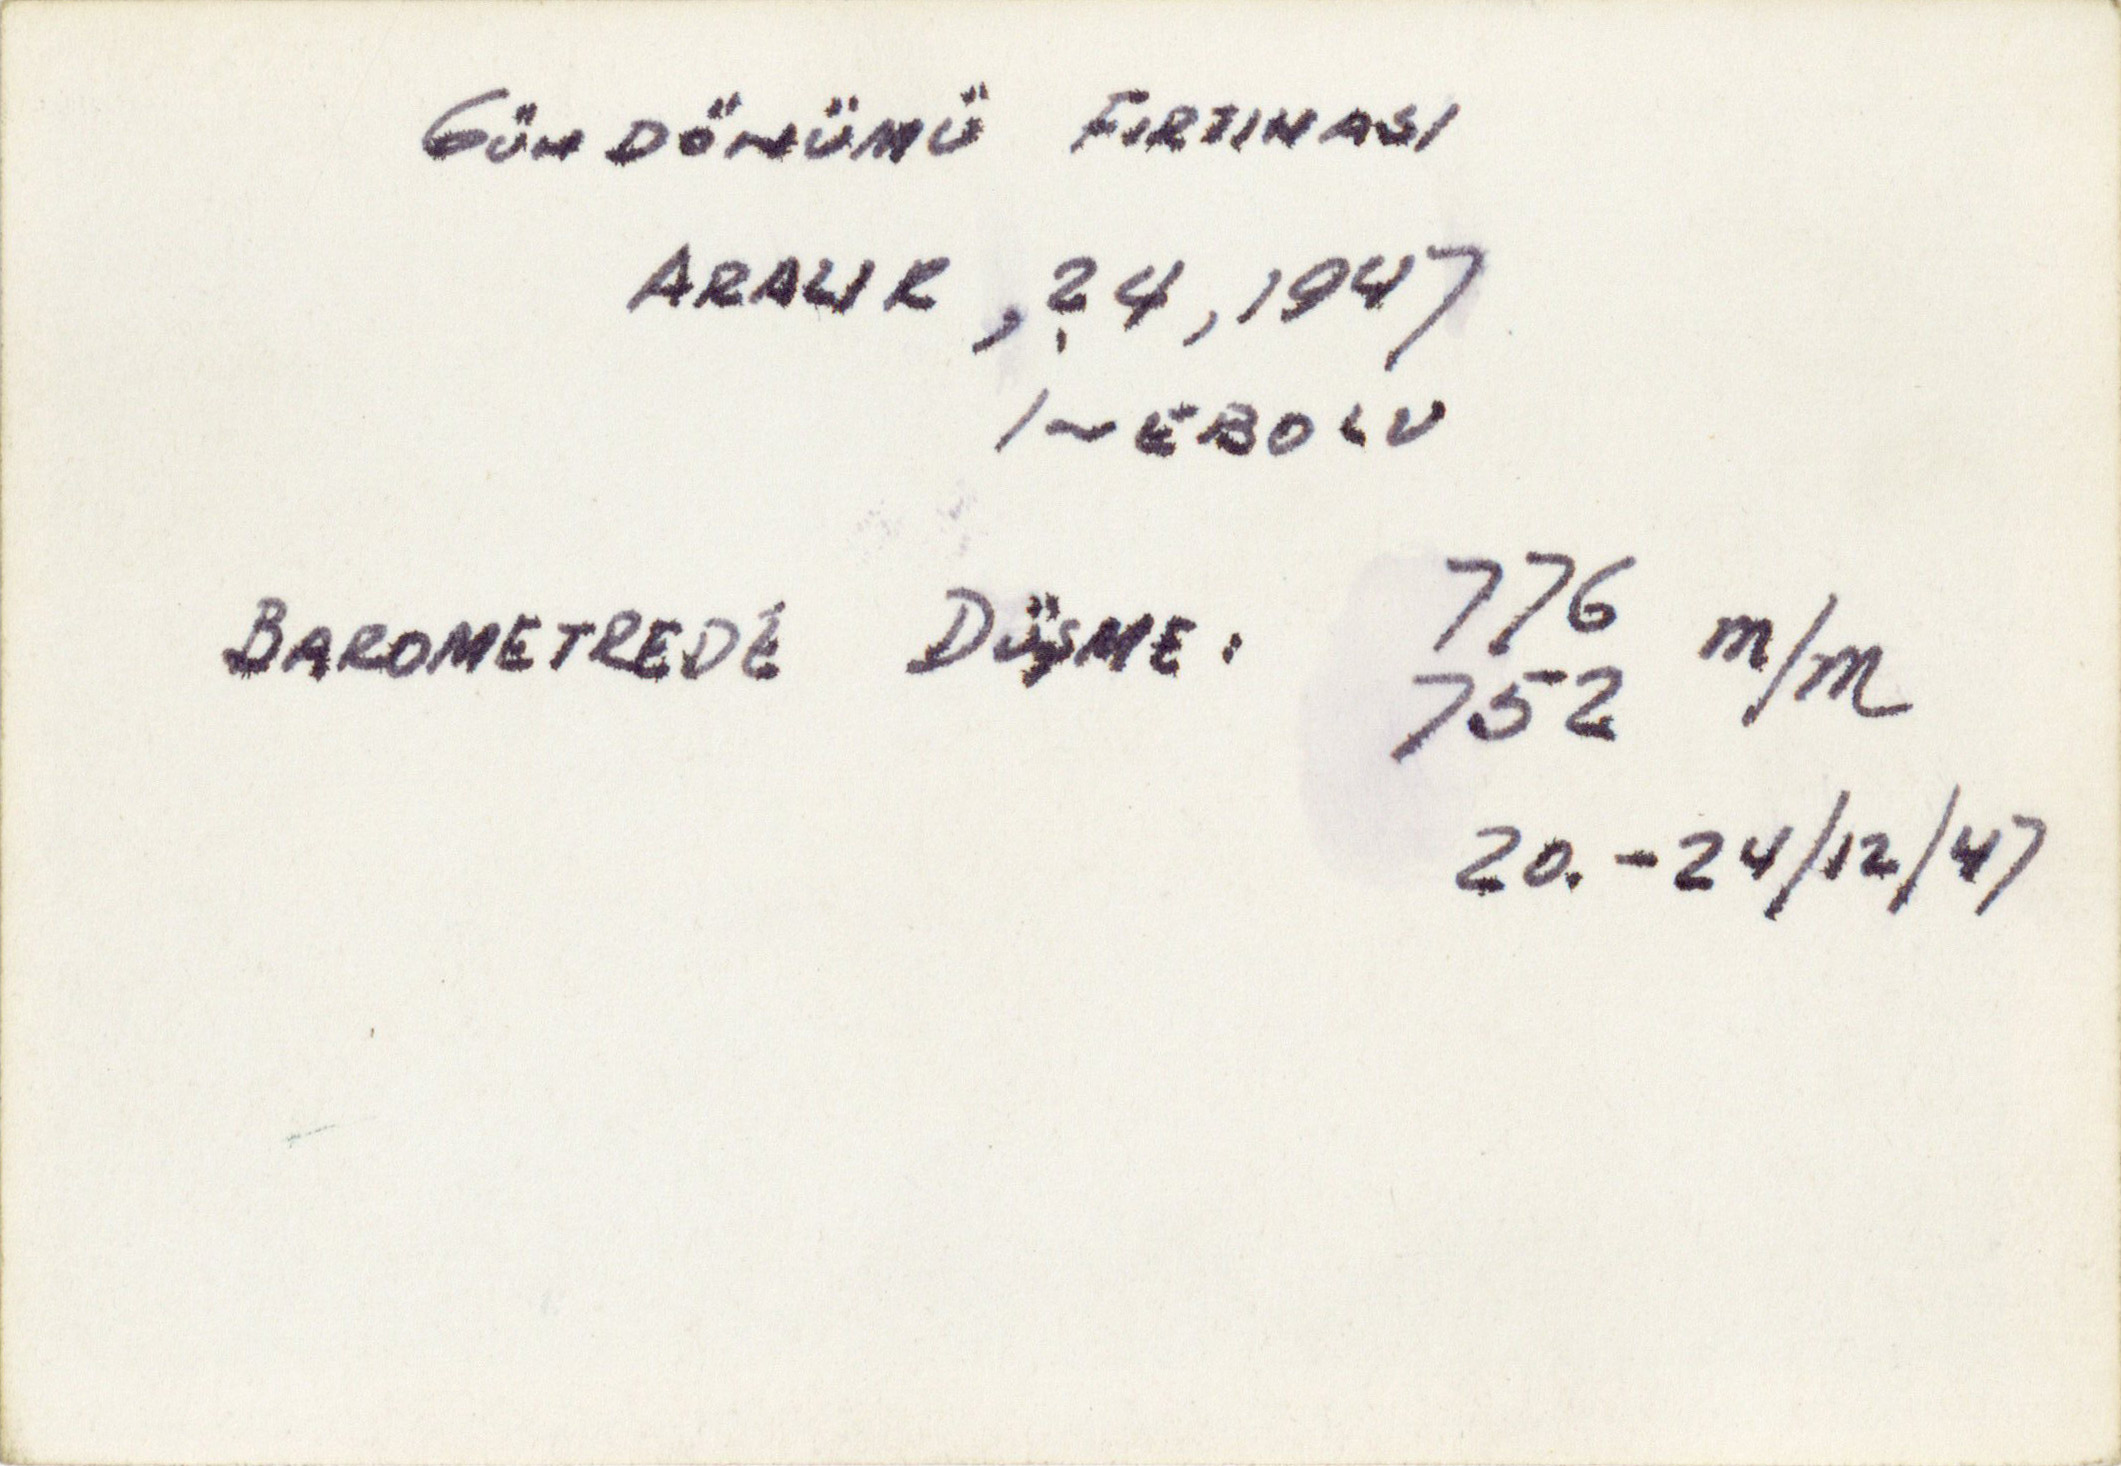 GÜNDÖNÜMÜ FIRTINASI
ARALIK, 24, 1947
INEBOLU
BAROMETREDE DÜŞME: 776 m/m
752
20.-24/12/47